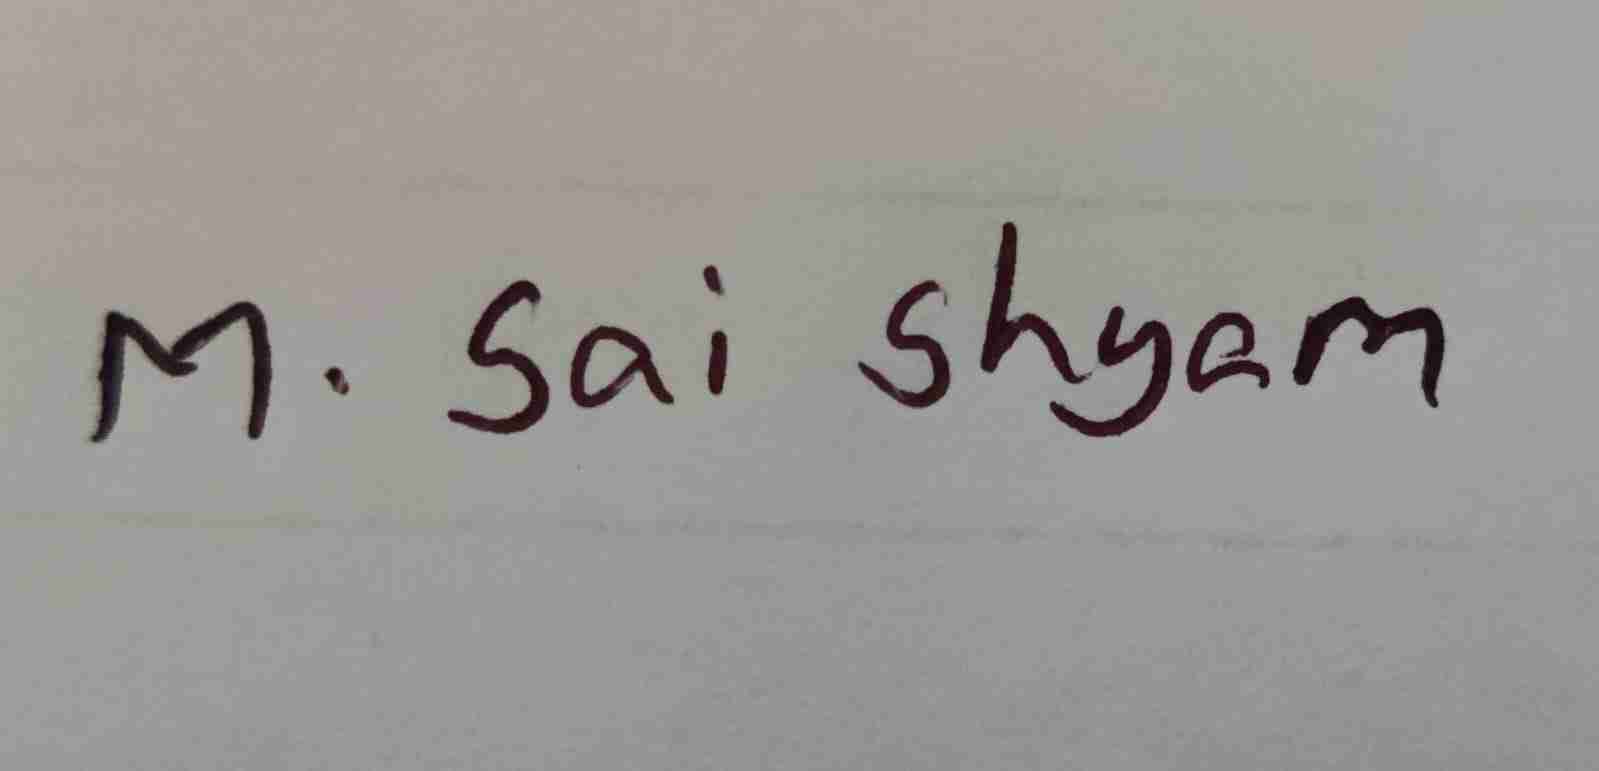 M. Sai Shyam